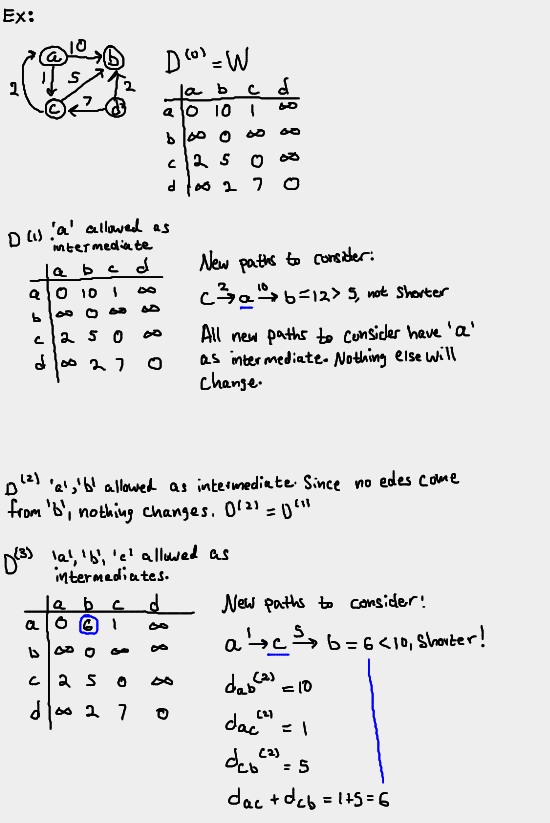 Ex:
a 10 b
1 5 2 2
c 7 d
D^(0) = W
a b c d
a 0 10 1 ∞
b ∞ 0 ∞ ∞
c 2 5 0 ∞
d ∞ 2 7 0
D^(1) 'a' allowed as
intermediate
a b c d
a 0 10 1 ∞
b ∞ 0 ∞ ∞
c 2 5 0 ∞
d ∞ 2 7 0
New paths to consider:
c →2 a →10 b = 12 > 5, not shorter
All new paths to consider have 'a'
as intermediate. Nothing else will
change.
D^(2) 'a','b' allowed as intermediate. Since no edes come
from 'b', nothing changes. D^(2) = D^(1)
D^(3) 'a', 'b', 'c' allowed as
intermediates.
a b c d
a 0 6 1 ∞
b ∞ 0 ∞ ∞
c 2 5 0 ∞
d ∞ 2 7 0
New paths to consider:
a →1 c →5 b = 6 < 10, Shorter!
d_ab^(2) = 10
d_ac^(2) = 1
d_cb^(2) = 5
d_ac + d_cb = 1+5 = 6